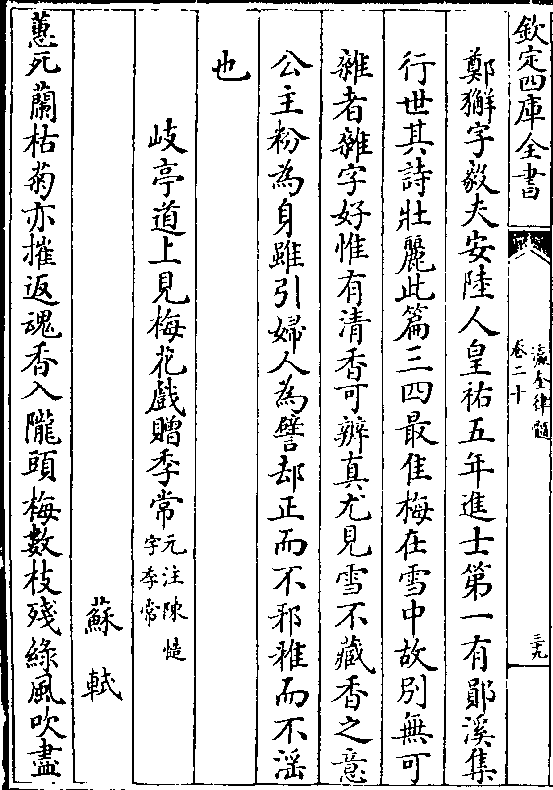 欽定四庫全書
瀛奎律髓
卷二十
三九
鄭獬字毅夫安陸人皇祐五年進士第一有鄖溪集
行世其詩壯麗此篇三四最佳梅在雪中故别無可
雜者雜字好惟有清香可辨真尤見雪不藏香之意
公主粉為身雖引婦人為譬却正而不邪雅而不淫
也
岐亭道上見梅花戲贈季常元注陳慥
字季常
蘇軾
蕙死蘭枯菊亦摧返魂香入隴頭梅數枝殘綠風吹盡